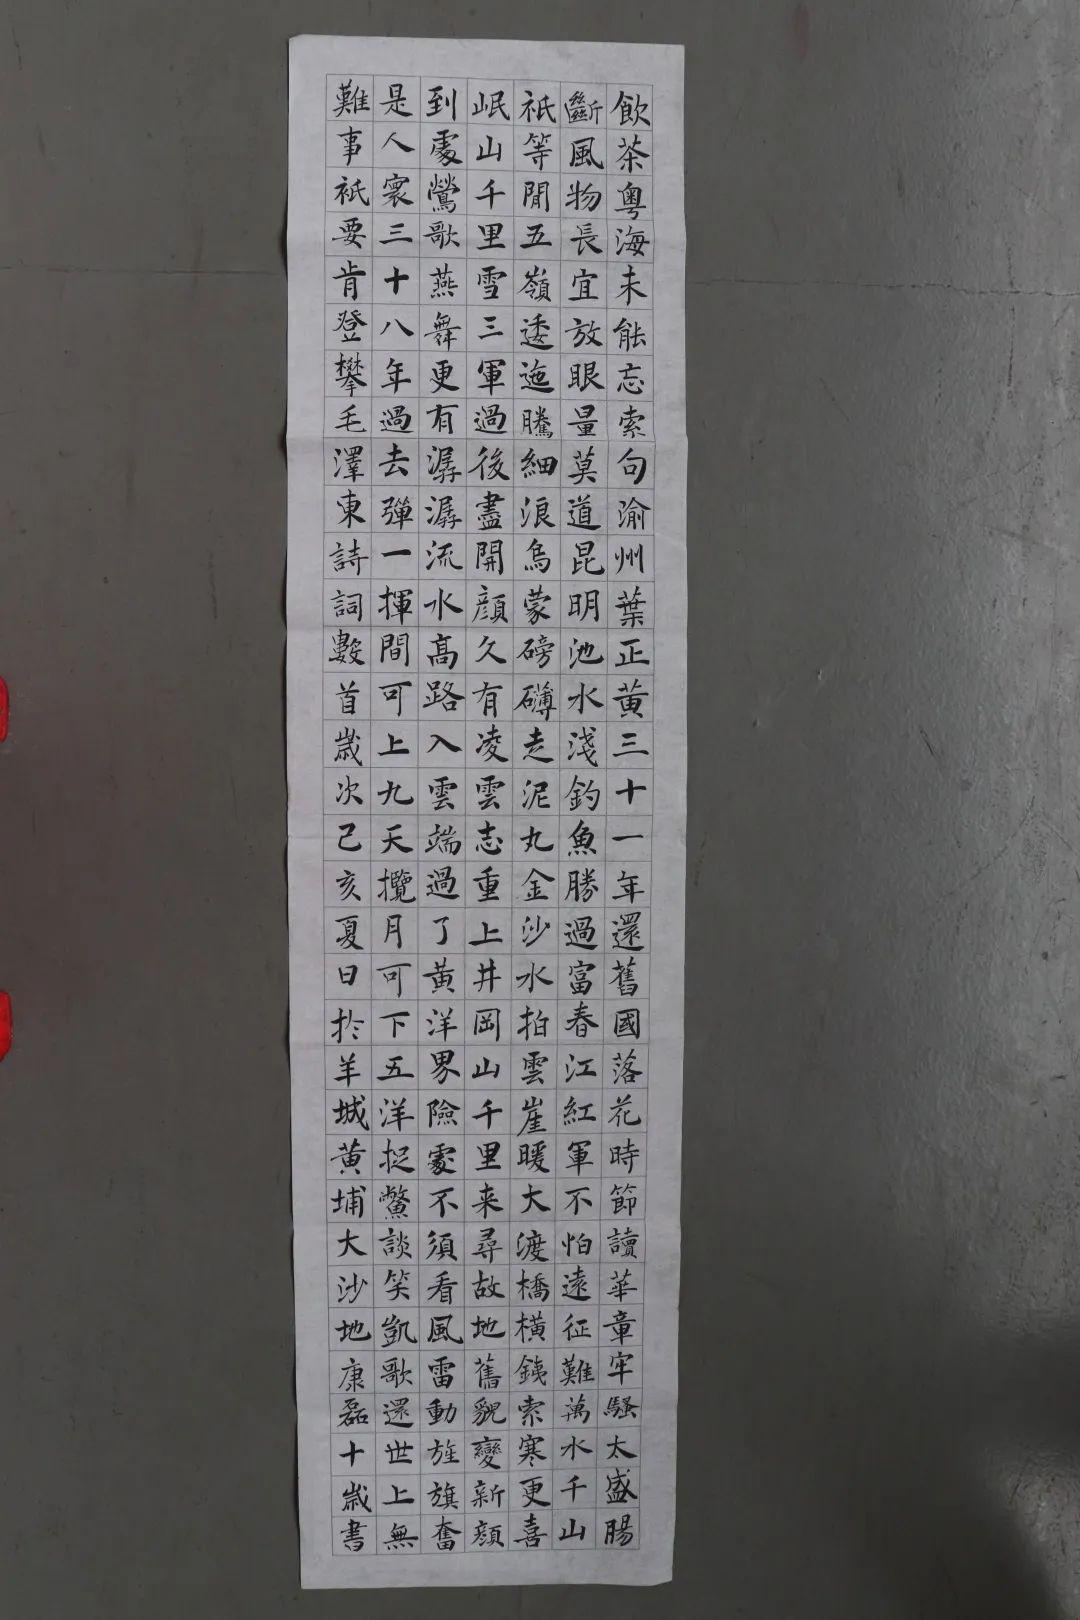 飲茶粵海未能忘索句渝州葉正黃三十一年還舊國落花時節讀華章牢騷太盛腸
斷風物長宜放眼量莫道昆明池水淺釣魚勝過富春江紅軍不怕遠征難萬水千山
祇等閒五嶺逶迤騰細浪烏蒙磅礴走泥丸金沙水拍雲崖暖大渡橋橫銕索寒更喜
岷山千里雪三軍過後盡開顏久有凌雲志重上井岡山千里来尋故地舊貌變新顏
到處鶯歌燕舞更有潺潺流水高路入雲端過了黃洋界險處不須看風雷動旌旗奮
是人寰三十八年過去彈一揮間可上九天攬月可下五洋捉鱉談笑凱歌還世上無
難事祇要肯登攀毛澤東詩詞數首歲次己亥夏日於羊城黃埔大沙地康磊十歲書